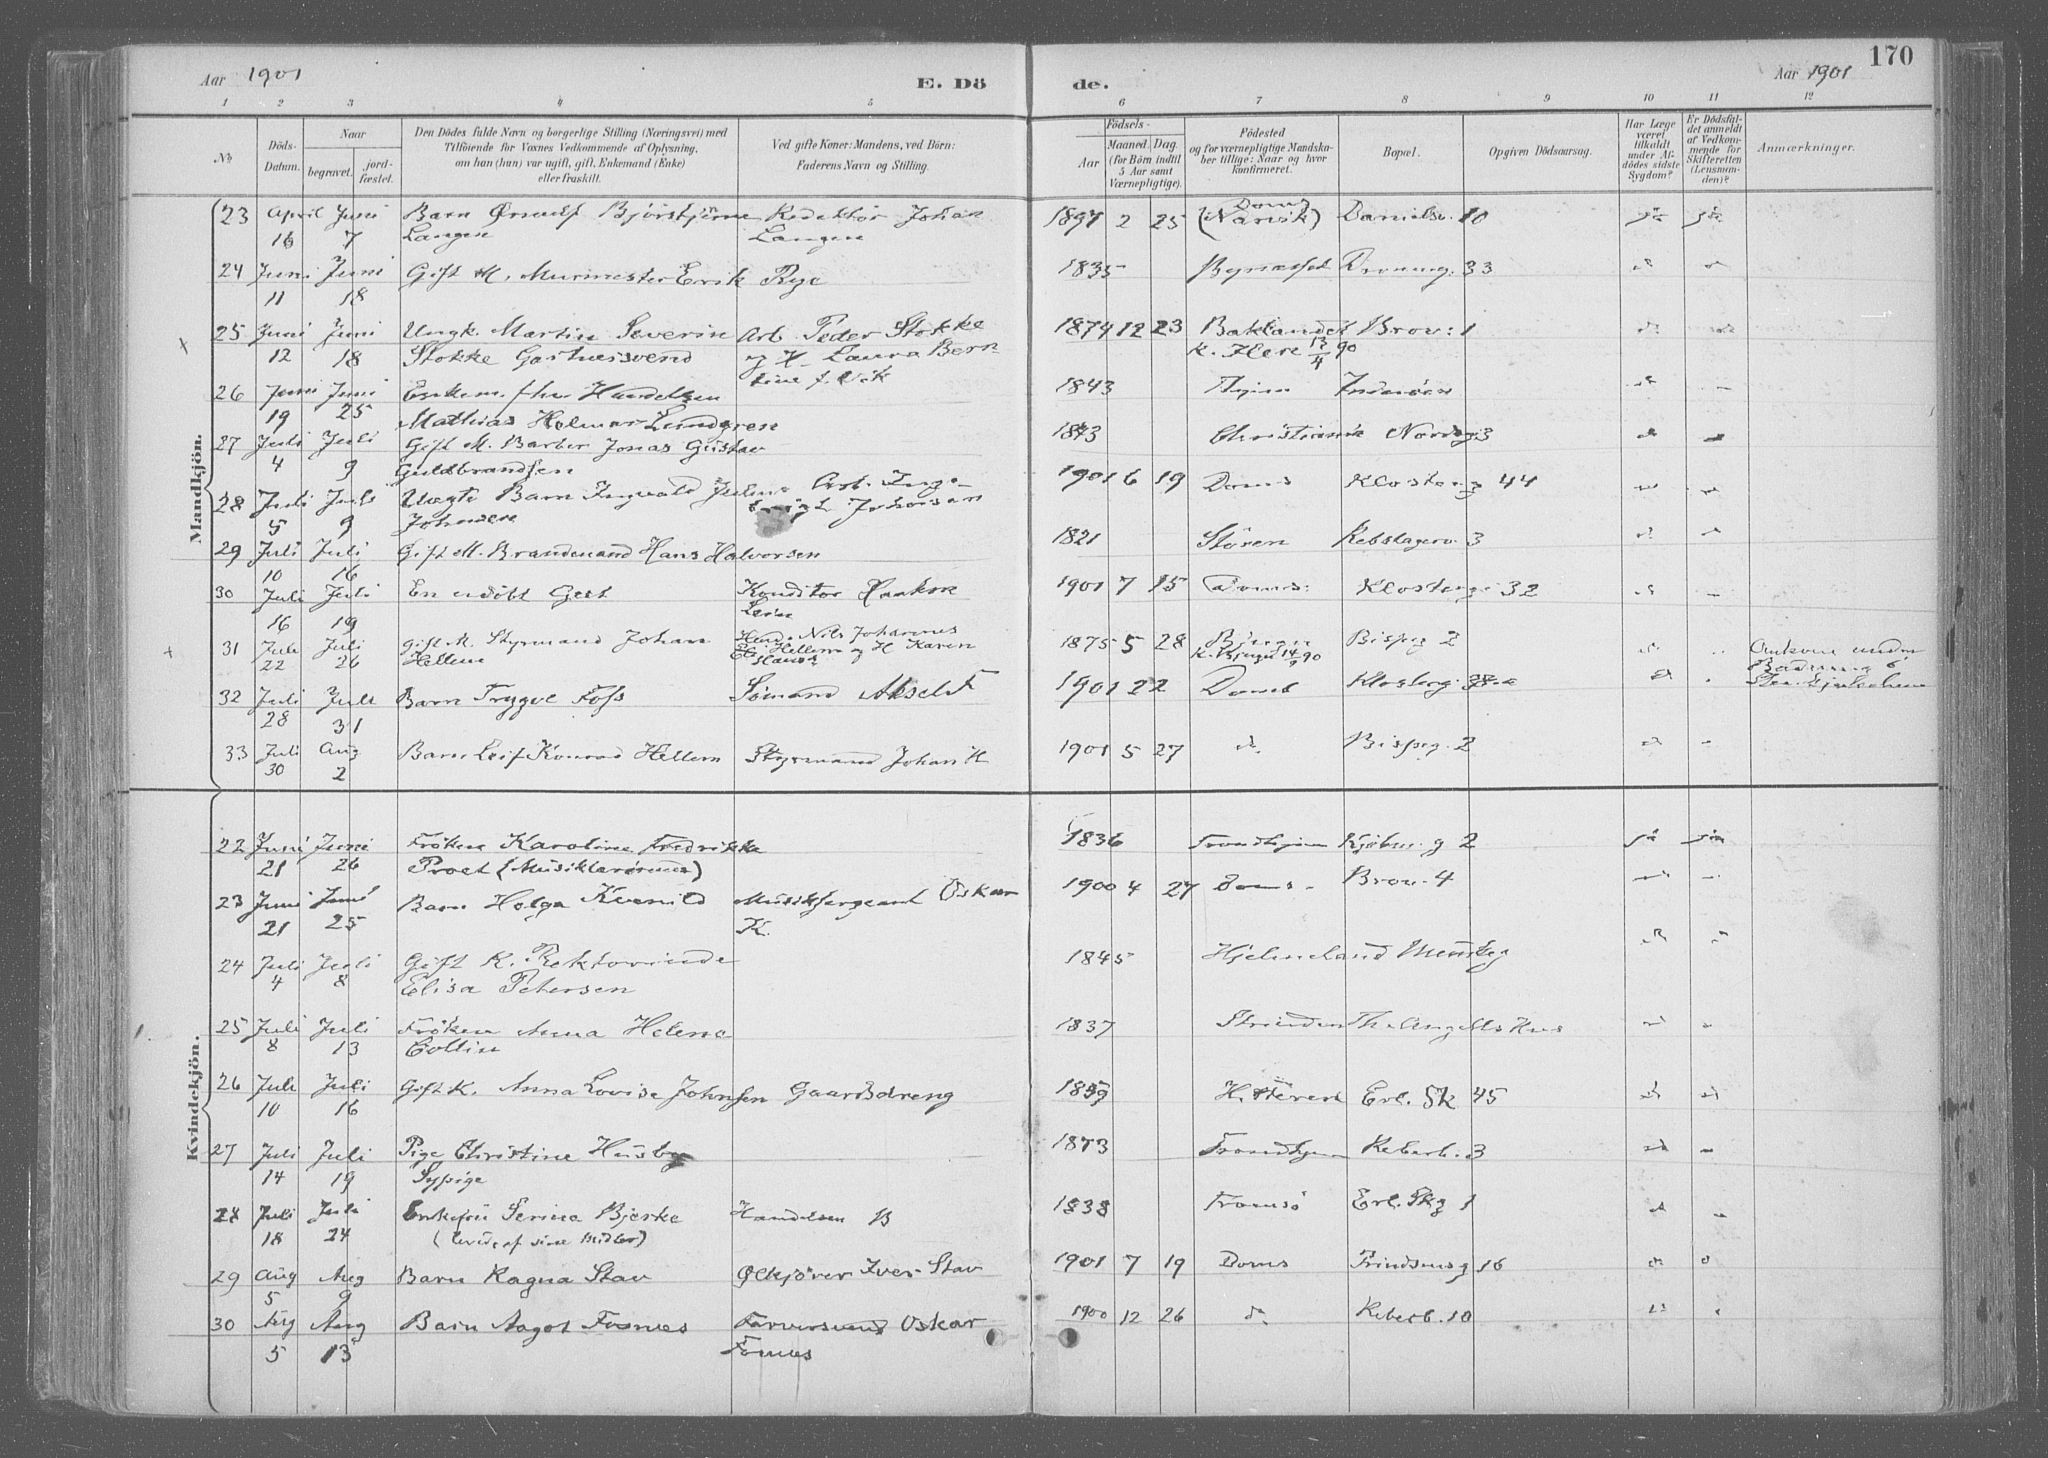 Aar 1901
E. Dö
de.
Aar 1901
170
1 2 3 4 5 6 7 8 9 10 11 12
No
Döds-Datum.
Naar
begravet.
jord-fæstet.
Den Dödes fulde Navn og borgerlige Stilling (Næringsvei) med
Tilföiende for Voxnes Vedkommende af Oplysning,
om han (hun) var ugift, gift, Enkemand (Enke)
eller fraskilt.
Ved gifte Koner: Mandens, ved Börn:
Faderens Navn og Stilling.
Födsels-
Aar
Maaned. Dag.
(for Börn indtil
5 Aar samt
Værnepligtige).
Födested
og for værnepligtige Mandska-
ber tillige: Naar og hvor
konfirmeret.
Bopæl.
Opgiven Dödsaarsag.
Har Læge
været
tilkaldt
under Af-
dödes sidste
Sygdom?
Er Dödsfal-
det anmeldt
af Vedkom-
mende for
Skifteretten
(Lensman-
den)?
Anmærkninger.
Mandkjön.
23 April 16 Juni 7 Barn Bjørstjerne Langen Redaktør Johan Langen 1897 2 25 Doms (Narvik) Danielsv. 10 ja ja
24 Juni 11 Juni 18 Gift M. Murmester Erik Rye 1835 Bynæsset Dronning. 33
25 Juni 12 Juni 18 Ungk. Martin Severin Stokke Garthersvend Arb. Peder Stokke og H. Laura Bern- tine f. Vik 1874 12 23 Baklandet k. Ilere 13/4 90 Brov: 1
26 Juni 19 Juni 25 Enkem. fhv. Handelsm Mathias Helmer Lundgren 1843 Inderøen
27 Juli 4 Juli 9 Gift M. Barber Jonas Gustav Guldbrandsen 1873 Christiania Nordrg. 3
28 Juli 5 Juli 9 Uægte Barn Ingvald Julius Johnsen Arb. Inge- Johansen 1901 6 19 Doms Klosterg 44
29 Juli 10 Juli 16 Gift M. Brandmand Hans Halvorsen 1821 Støren Rebslagerv. 3
30 Juli 16 Juli 19 En udøbt Gut Konditor Haakon Lein 1901 7 15 Doms: Klosterg. 32
31 Juli 22 Juli 26 Gift M. Styrmand Johan Hellem Nils Johannes Hellem og H Karen 1875 5 28 Bjugn k. Bjugn 14/9 90 Bispeg 2 under Badning
32 Juli 28 Juli 31 Barn Trygve Foss Sömand Aksel F 1901 2 2 Doms Klosterg.
33 Juli 30 Aug 2 Barn Leif Konrad Hellem Styrmand Johan H 1901 5 27 do. Bispeg. 2
Kvindekjön.
22 Juni 21 Juni 26 Fröken Karoline Fredrikke Proet (Musiklærerinde) 1836 Trondhjem Kjøbm. g 2 ja ja
23 Juni 21 Juni 25 Barn Helga Kvenild Musiksergeant Oskar K. 1900 4 27 Doms. Brov. 4
24 Juli 4 Juli 8 Gift K. Rektorinde Elisa Petersen 1845 Hjelmeland Munkeg
25 Juli 8 Juli 13 Fröken Anna Helene Collin 1837 Strinden Th. Angells Hus
26 Juli 10 Juli 16 Gift K. Anna Lovise Johnsen Gaardsdreng 1859 Hitteren Erl. Sk 45
27 Juli 14 Juli 19 Pige Christine Husby Sypige 1873 Trondhjem Reberb. 3
28 Juli 18 Juli 24 Enkefru Serine Bjerke (leved af sine Midler) Handelsm B 1838 Tromsö Erl. Skg 1
29 Aug 5 Aug 9 Barn Ragna Stav Ølkjörer Iver Stav 1901 7 19 Doms Prindsensg 16
30 Aug 5 Aug 13 Barn Aagot Fosnes Farversvend Oskar Fosnes 1900 12 26 do. Reberb. 10